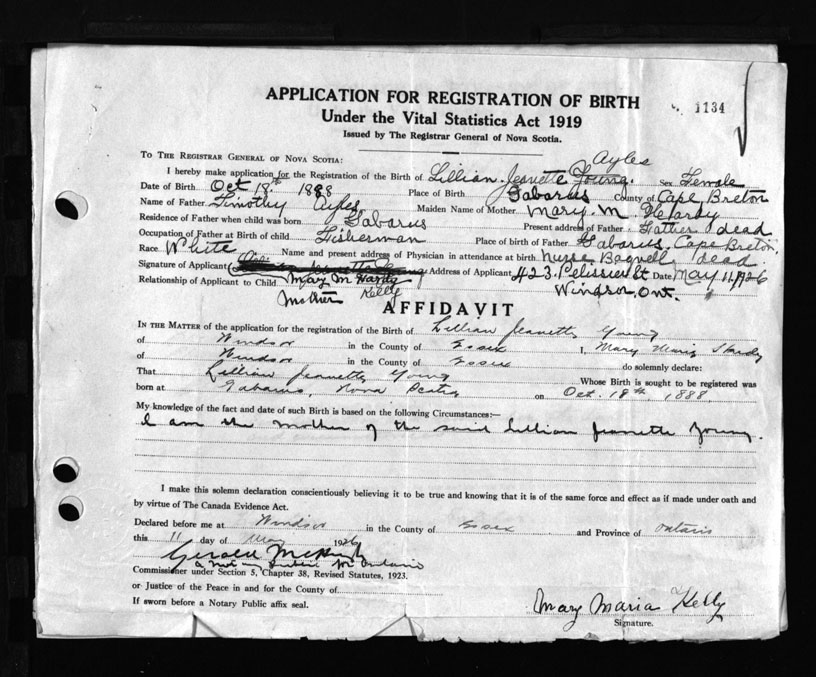 1134
APPLICATION FOR REGISTRATION OF BIRTH
Under the Vital Statistics Act 1919
Issued by The Registrar General of Nova Scotia.
TO THE REGISTRAR GENERAL OF NOVA SCOTIA:
Ayles
I hereby make application for the Registration of the Birth of Lillian Jeanette Young. Sex Female
Date of Birth Oct 18th 1888 Place of Birth Gabarus County of Cape Breton
Name of Father Timothy Ayles Maiden Name of Mother Mary. M Hardy
Residence of Father when child was born Gabarus Present address of Father Father dead
Occupation of Father at Birth of child Fisherman Place of birth of Father Gabarus, Cape Breton,
Race White Name and present address of Physician in attendance at birth Nurse Bagnell dead
Signature of Applicant Address of Applicant 423 Pelissier St Date May 11, 1926
Relationship of Applicant to Child Mary M Hardy Windsor, Ont.
Mother Kelly
AFFIDAVIT
IN THE MATTER of the application for the registration of the Birth of Lillian Jeanette Young
of Windsor in the County of Essex I, Mary Maria Hardy
of Windsor in the County of Essex do solemnly declare:
That Lillian Jeanette Young Whose Birth is sought to be registered was
born at Gabarus, Nova Scotia on Oct. 18th 1888.
My knowledge of the fact and date of such Birth is based on the following Circumstances:—
I am the mother of the said Lillian Jeanette Young.
I make this solemn declaration conscientiously believing it to be true and knowing that it is of the same force and effect as if made under oath and
by virtue of The Canada Evidence Act.
Declared before me at Windsor in the County of Essex and Province of Ontario
this 11 day of May 1926
Gerald McHugh
a Notary Public in Ontario
Commissioner under Section 5, Chapter 38, Revised Statutes, 1923.
or Justice of the Peace in and for the County of
If sworn before a Notary Public affix seal.
Mary Maria Kelly
Signature.